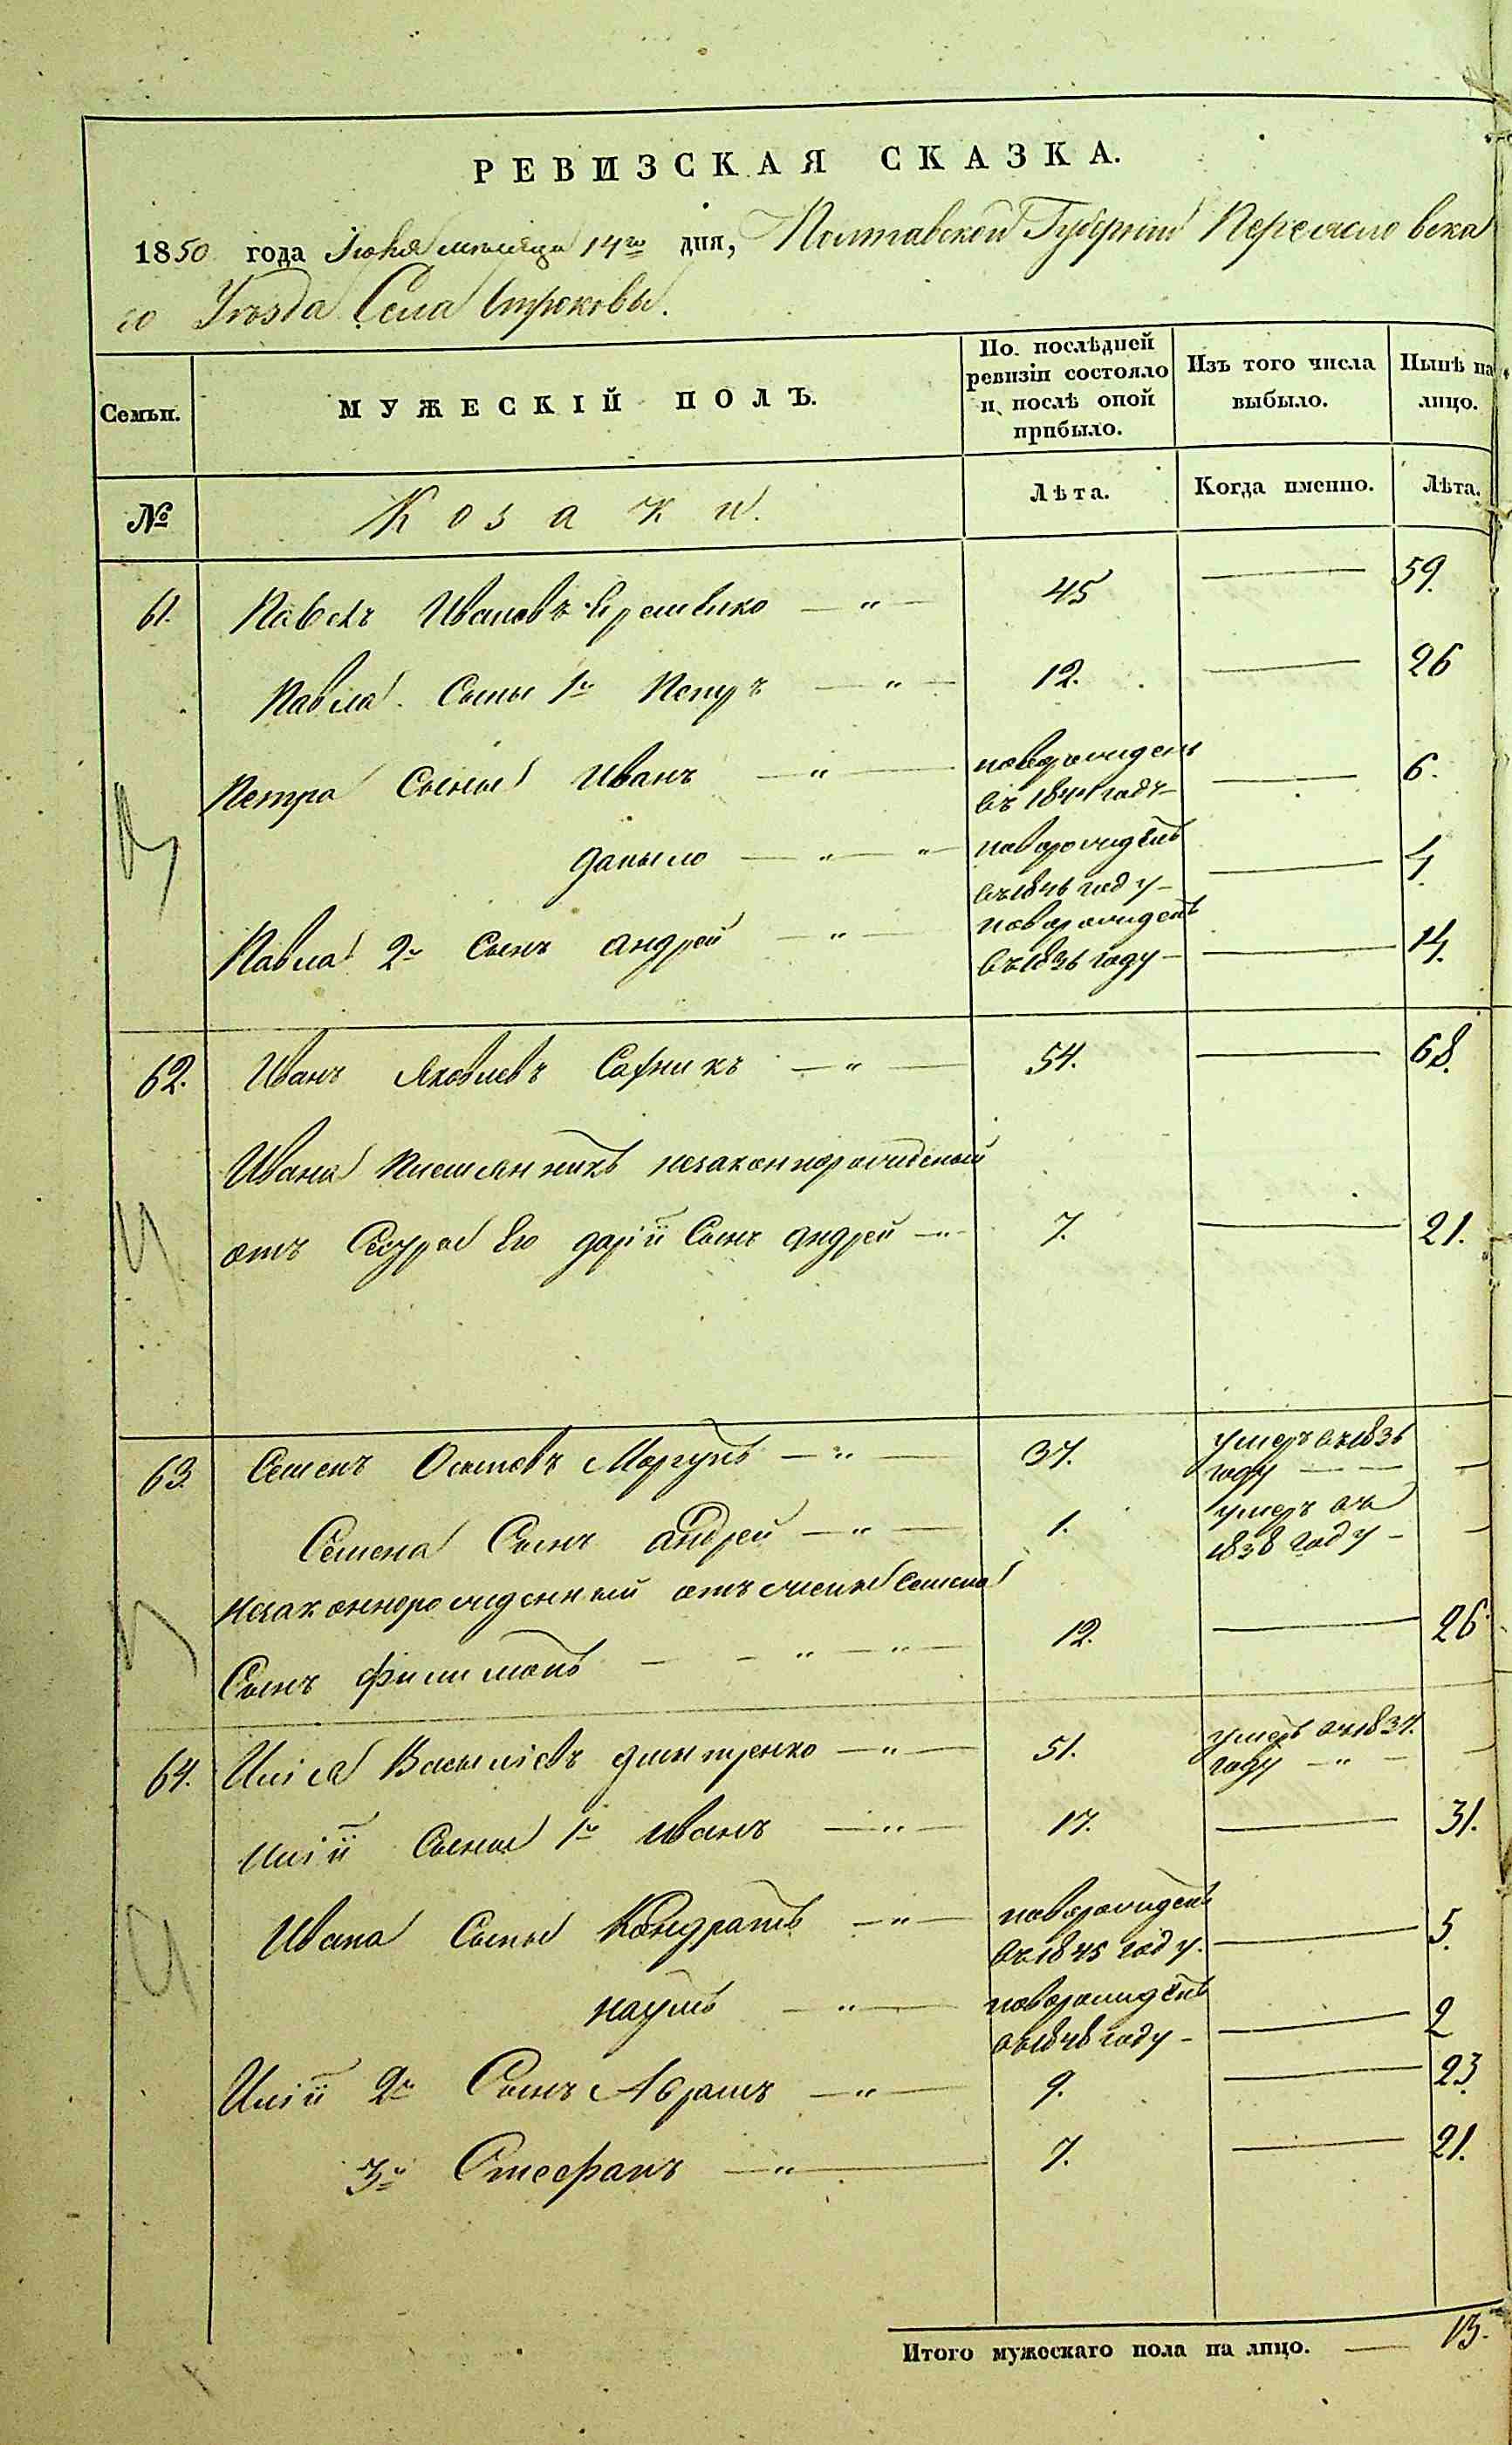 РЕВИЗСКАЯ СКАЗКА.
1850 года Июня месяца 14го дня, Полтавской Губернии Переяславска
го Уезда Села Строковы.
Семьи.
МУЖЕСКІЙ ПОЛЪ.
По последней
ревизіи состояло
и после оной
прибыло.
Изъ того числа
выбыло.
Ныне на
лицо.
№
Козаки.
Лѣта.
Когда именно.
Лѣта.
61. Павелъ Ивановъ — " — 45 — 59.
Павла Сыны 1й Петръ — " — 12. — 26
Петра Сыны Иванъ — " — новорожденъ въ 1844 годъ — 6.
Даныло — " — " новорожденъ въ 1846 году — 4.
Павла 2й Сынъ Андрей — " — новорожденъ въ 1836 году — 14.
62. Иванъ Яковлевъ — " — 54. — 68.
Ивана Племянникъ незаконнорожденый
отъ Сестры Его Даріи Сынъ Андрей — " — 7. — 21.
63. Семенъ Осиповъ Моргунъ — " — 37. умеръ въ 1836 году — —
Семена Сынъ Андрей — " — 1. умеръ въ 1838 году — —
Незаконнорожденный отъ жены Семена
Сынъ Филимонъ — " — 12. — 26
64. Илія Васыліевъ Дмитренко — " — 51. умеръ въ 1834. году — " — —
Иліи Сыны 1й Иванъ — " — 17. — 31.
Ивана Сыны Кондратъ — " — новорожденъ въ 1845 году. — 5.
Наумъ — " — новорожденъ въ 1848 году — 2
Иліи 2й Сынъ Абрамъ — " — 9. — 23.
3й Стефанъ — " — 7. — 21.
Итого мужескаго пола на лицо. — 13.